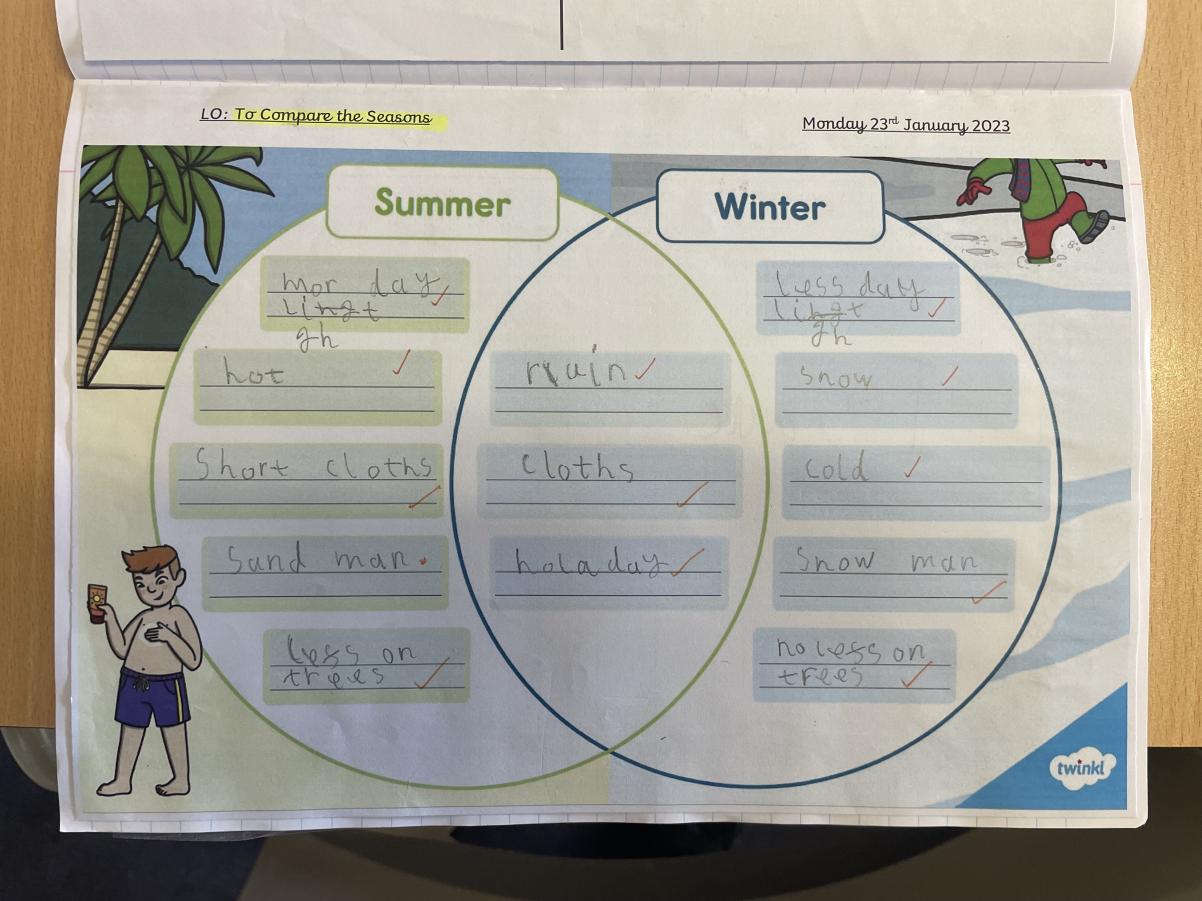 LO: To Compare the Seasons
Monday 23rd January 2023
Summer
Winter
mor day
lingt
gh
hot
Short cloths
Sand man.
less on
trees
rain
cloths
holaday
less day
lingt
gh
snow
cold
Snow man
no less on
trees
twinkl